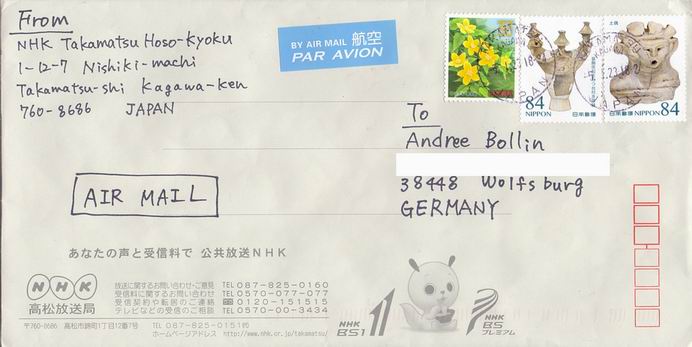 From
NHK Takamatsu Hoso-Kyoku
1-12-7 Nishiki-machi
Takamatsu-shi Kagawa-ken
760-8686 JAPAN
BY AIR MAIL 航空
PAR AVION
84
日本郵便
NIPPON
84
日本郵便
NIPPON
To
Andree Bollin
38448 Wolfsburg
GERMANY
AIR MAIL
あなたの声と受信料で 公共放送NHK
NHK
高松放送局
放送に関するお問い合わせ・ご意見 TEL087-825-0160
受信料に関するお問い合わせ TEL0570-077-077
受信契約や転居のご連絡 0120-151515
テレビなどの受信のご相談 TEL0570-00-3434
〒760-8686 高松市錦町1丁目12番7号 TEL 087-825-0151㈹
ホームページアドレス http://www.nhk.or.jp/takamatsu/
NHK
BS1
11
NHK
BS
プレミアム